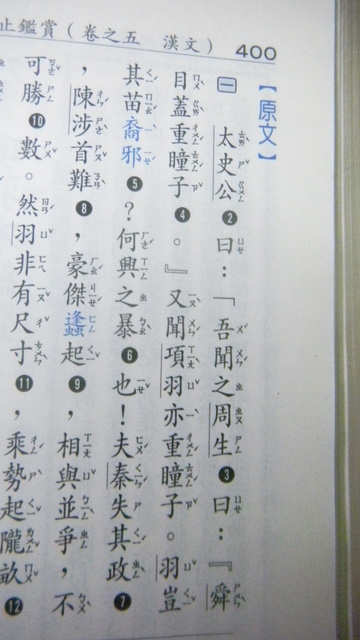 止鑑賞（卷之五　漢文）　400
【原文】
一　太史公❷曰：「吾聞之周生❸曰：『舜
目蓋重瞳子❹。』又聞項羽亦重瞳子。羽豈
其苗裔邪❺？何興之暴❻也！夫秦失其政❼
，陳涉首難❽，豪傑蠭起❾，相與並爭，不
可勝❿數。然羽非有尺寸⓫，乘勢起隴畝⓬